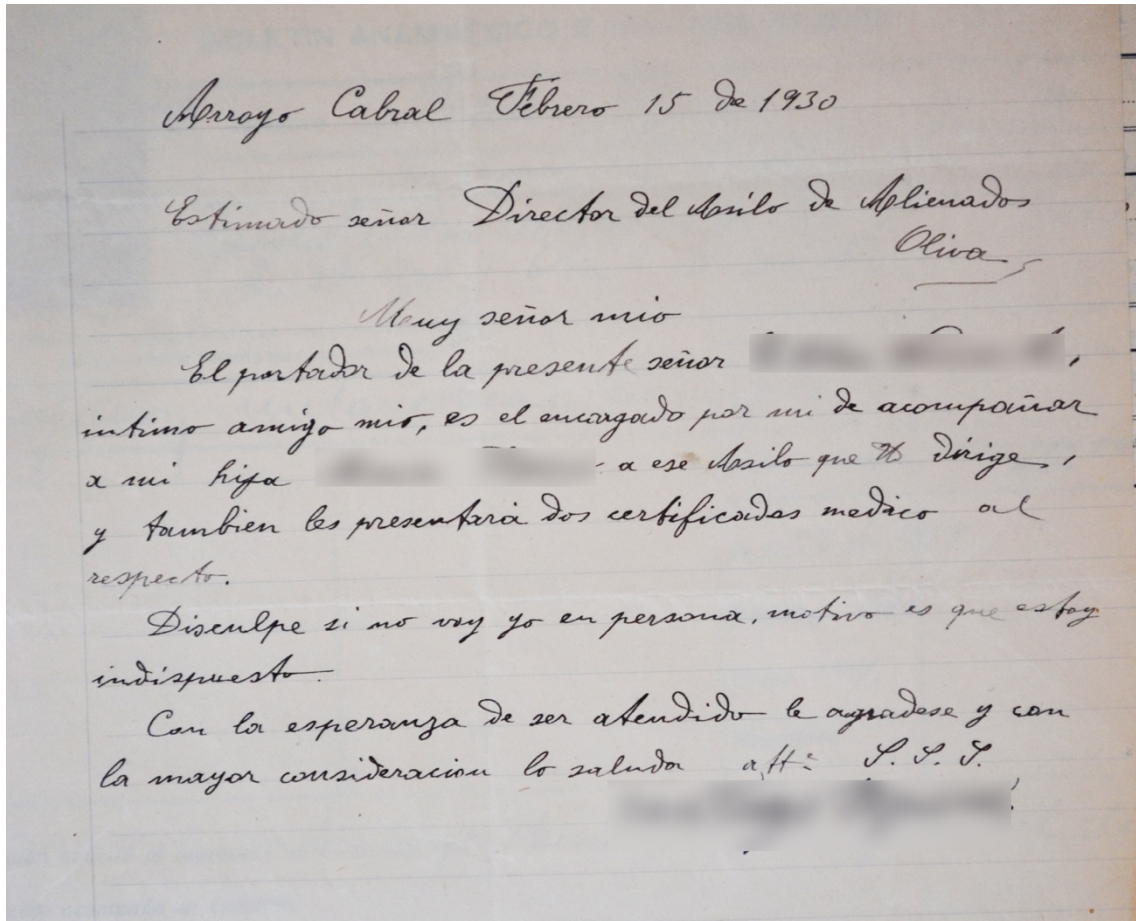 Arroyo Cabral Febrero 15 de 1930
Estimado señor Director del Asilo de Alienados
Oliva
Muy señor mio
El portador de la presente señor ,
intimo amigo mio, es el encargado por mi de acompañar
a mi hija a ese Asilo que Ud dirige,
y tambien les presentará dos certificados medico al
respecto.
Disculpe si no voy yo en persona, motivo es que estoy
indispuesto.
Con la esperanza de ser atendido le agradese y con
la mayor consideracion lo saluda att: S. S. S.